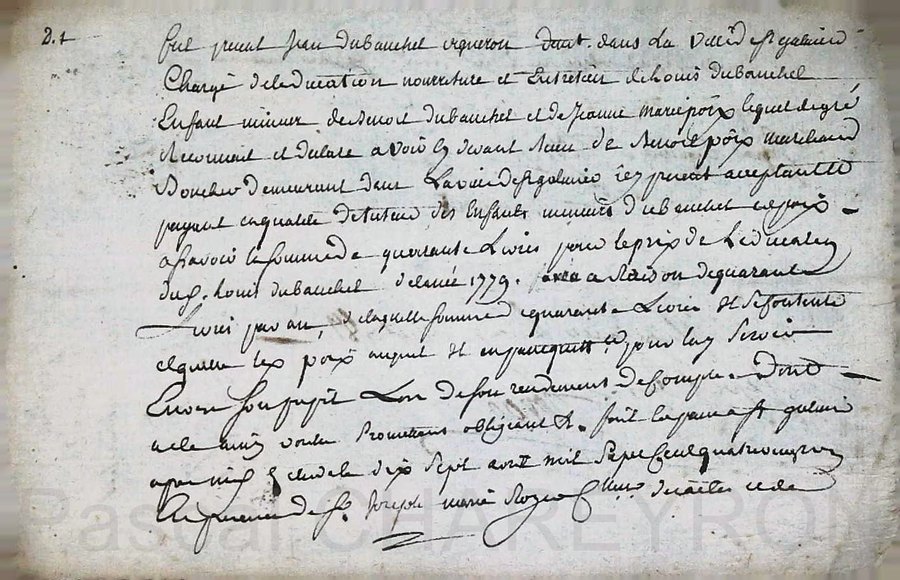 2.1
fut present Jean dubanchet vigneron dmt. dans la ville de st galmier
Chargé de leducation nourreture et Entretien de Louis dubanchet
Enfant mineur de Benoit dubanchet et de Jeanne marie poix lequel de gré
Reconnait et declare avoir cy devant Receu de Benoit poix marchand
Boucher demeurant dans La ville de st galmier icy present acceptant et
payant en qualité de tuteur des Enfants mineurs dubanchet et poix
a savoir la somme de quarante Livres pour le prix de Leducation
dud. Louis dubanchet de lannée 1779. a Raison de quarante
Livres par an, de laquelle somme de quarante Livres se contente
et quitte led poix auquel pour luy Servir
Envers Son pupil Lors de son rendement de Compte. Dont
acte voulu Promettant obligeant &. fait et passé a st galmier
apres midy le dix Sept avril mil Sept Cent quatre vingt
En presence de Sr. Joseph marie
Pascal CHAREYRON